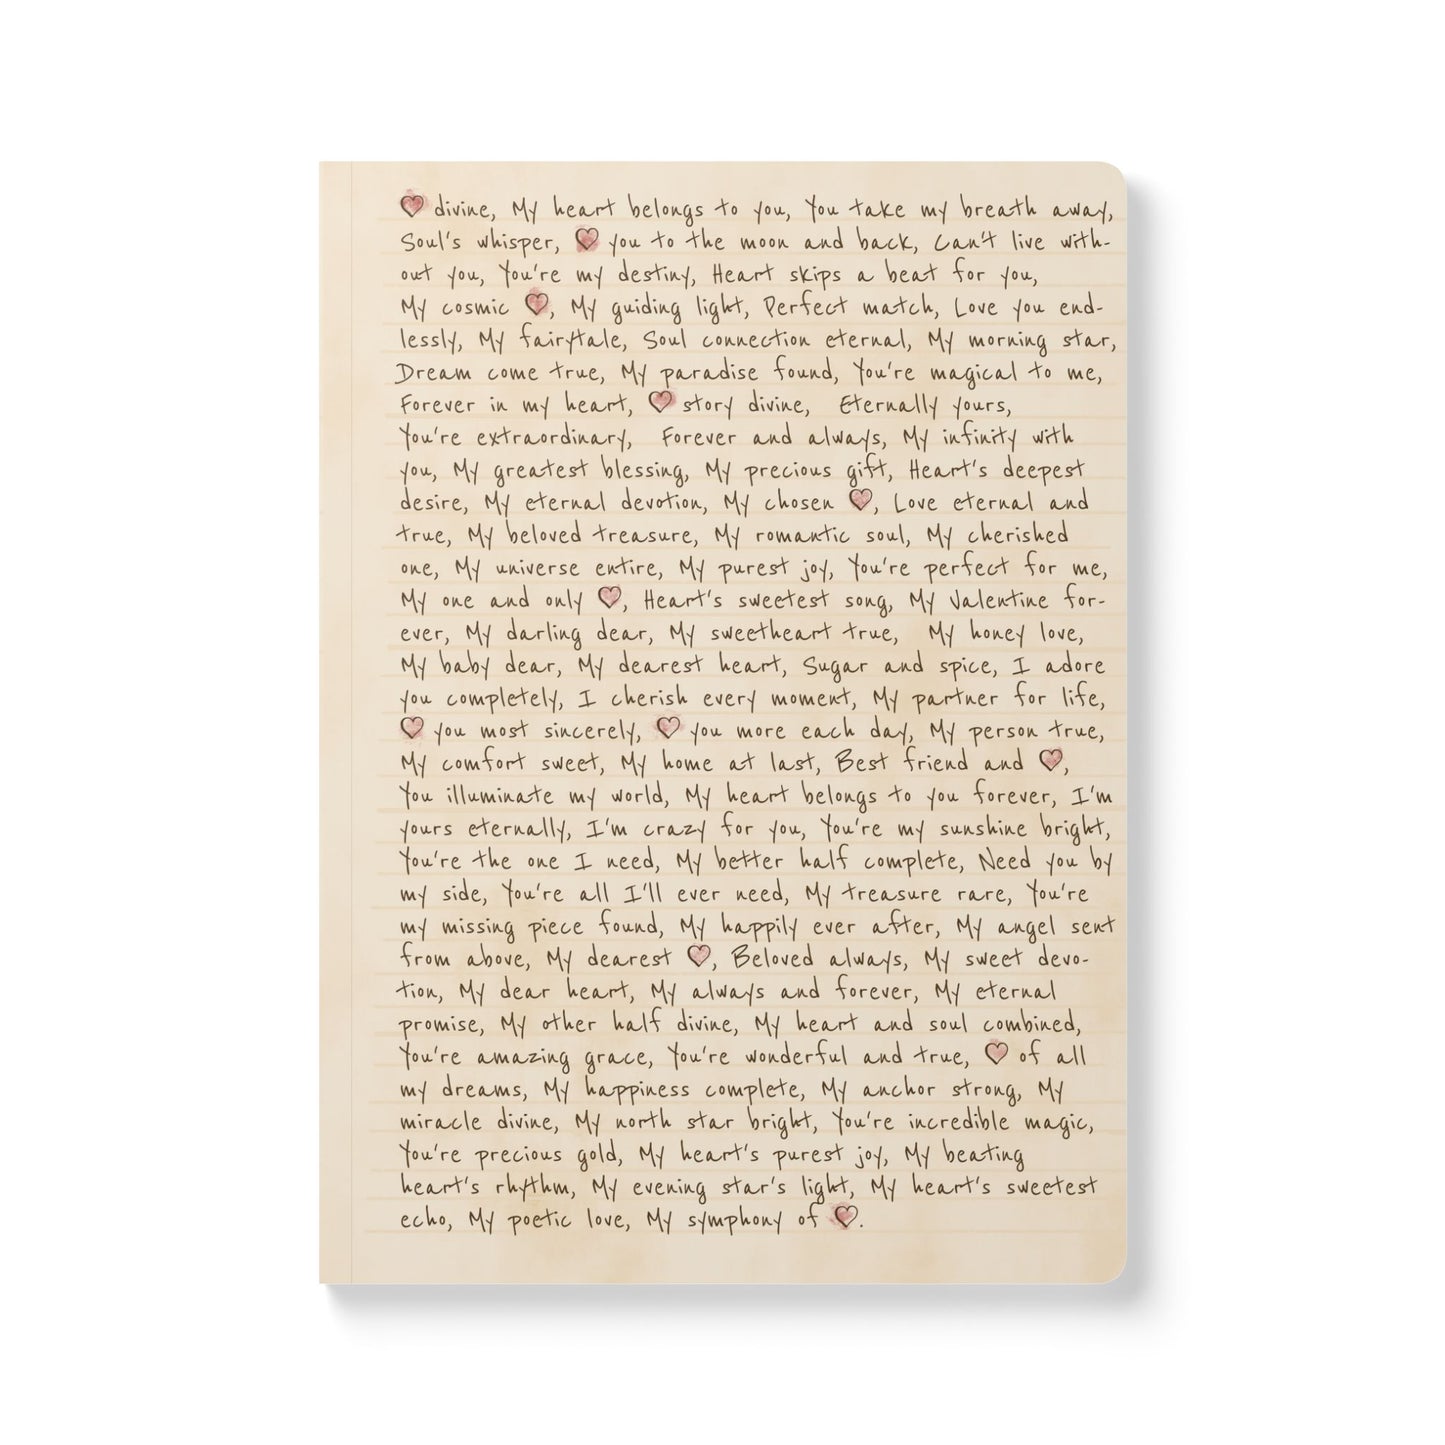 ♡ divine, My heart belongs to you, You take my breath away,
Soul's whisper, ♡ you to the moon and back, Can't live with-
out you, You're my destiny, Heart skips a beat for you,
My cosmic ♡, My guiding light, Perfect match, Love you end-
lessly, My fairytale, Soul connection eternal, My morning star,
Dream come true, My paradise found, You're magical to me,
Forever in my heart, ♡ story divine, Eternally yours,
You're extraordinary, Forever and always, My infinity with
you, My greatest blessing, My precious gift, Heart's deepest
desire, My eternal devotion, My chosen ♡, Love eternal and
true, My beloved treasure, My romantic soul, My cherished
one, My universe entire, My purest joy, You're perfect for me,
My one and only ♡, Heart's sweetest song, My Valentine for-
ever, My darling dear, My sweetheart true, My honey love,
My baby dear, My dearest heart, Sugar and spice, I adore
you completely, I cherish every moment, My partner for life,
♡ you most sincerely, ♡ you more each day, My person true,
My comfort sweet, My home at last, Best friend and ♡,
You illuminate my world, My heart belongs to you forever, I'm
yours eternally, I'm crazy for you, You're my sunshine bright,
You're the one I need, My better half complete, Need you by
my side, You're all I'll ever need, My treasure rare, You're
my missing piece found, My happily ever after, My angel sent
from above, My dearest ♡, Beloved always, My sweet devo-
tion, My dear heart, My always and forever, My eternal
promise, My other half divine, My heart and soul combined,
You're amazing grace, You're wonderful and true, ♡ of all
my dreams, My happiness complete, My anchor strong, My
miracle divine, My north star bright, You're incredible magic,
You're precious gold, My heart's purest joy, My beating
heart's rhythm, My evening star's light, My heart's sweetest
echo, My poetic love, My symphony of ♡.